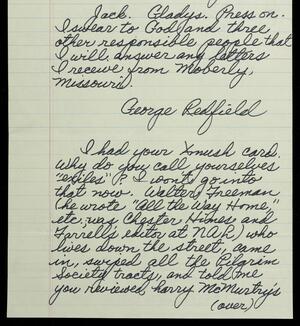 Jack. Gladys. Press on.
I swear to God and three
other responsible people that
I will answer any letters
I receive from Moberly,
Missouri.
George Redfield
I had your Xmush card.
Why do you call yourselves
"exiles"? I won't go into
that now. Walter Freeman
(he wrote "All the Way Home,"
etc, was Chester Himes and
Farrell's editor at NAL, who
lives down the street, came
in, swiped all the Pilgrim
Society tracts, and told me
you reviewed Larry McMurtry's
(over)